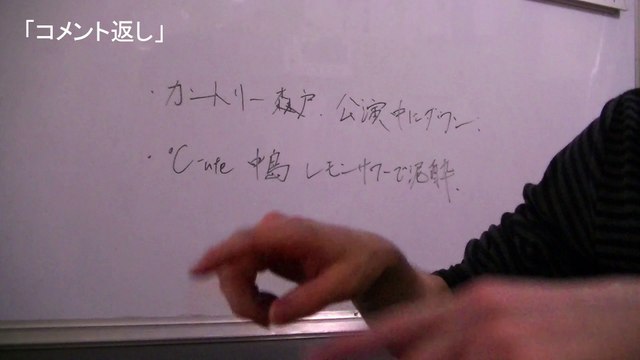 「コメント返し」
・カントリー森戸、公演中にダウン、
・℃-ute 中島 レモンサワーで泥酔、